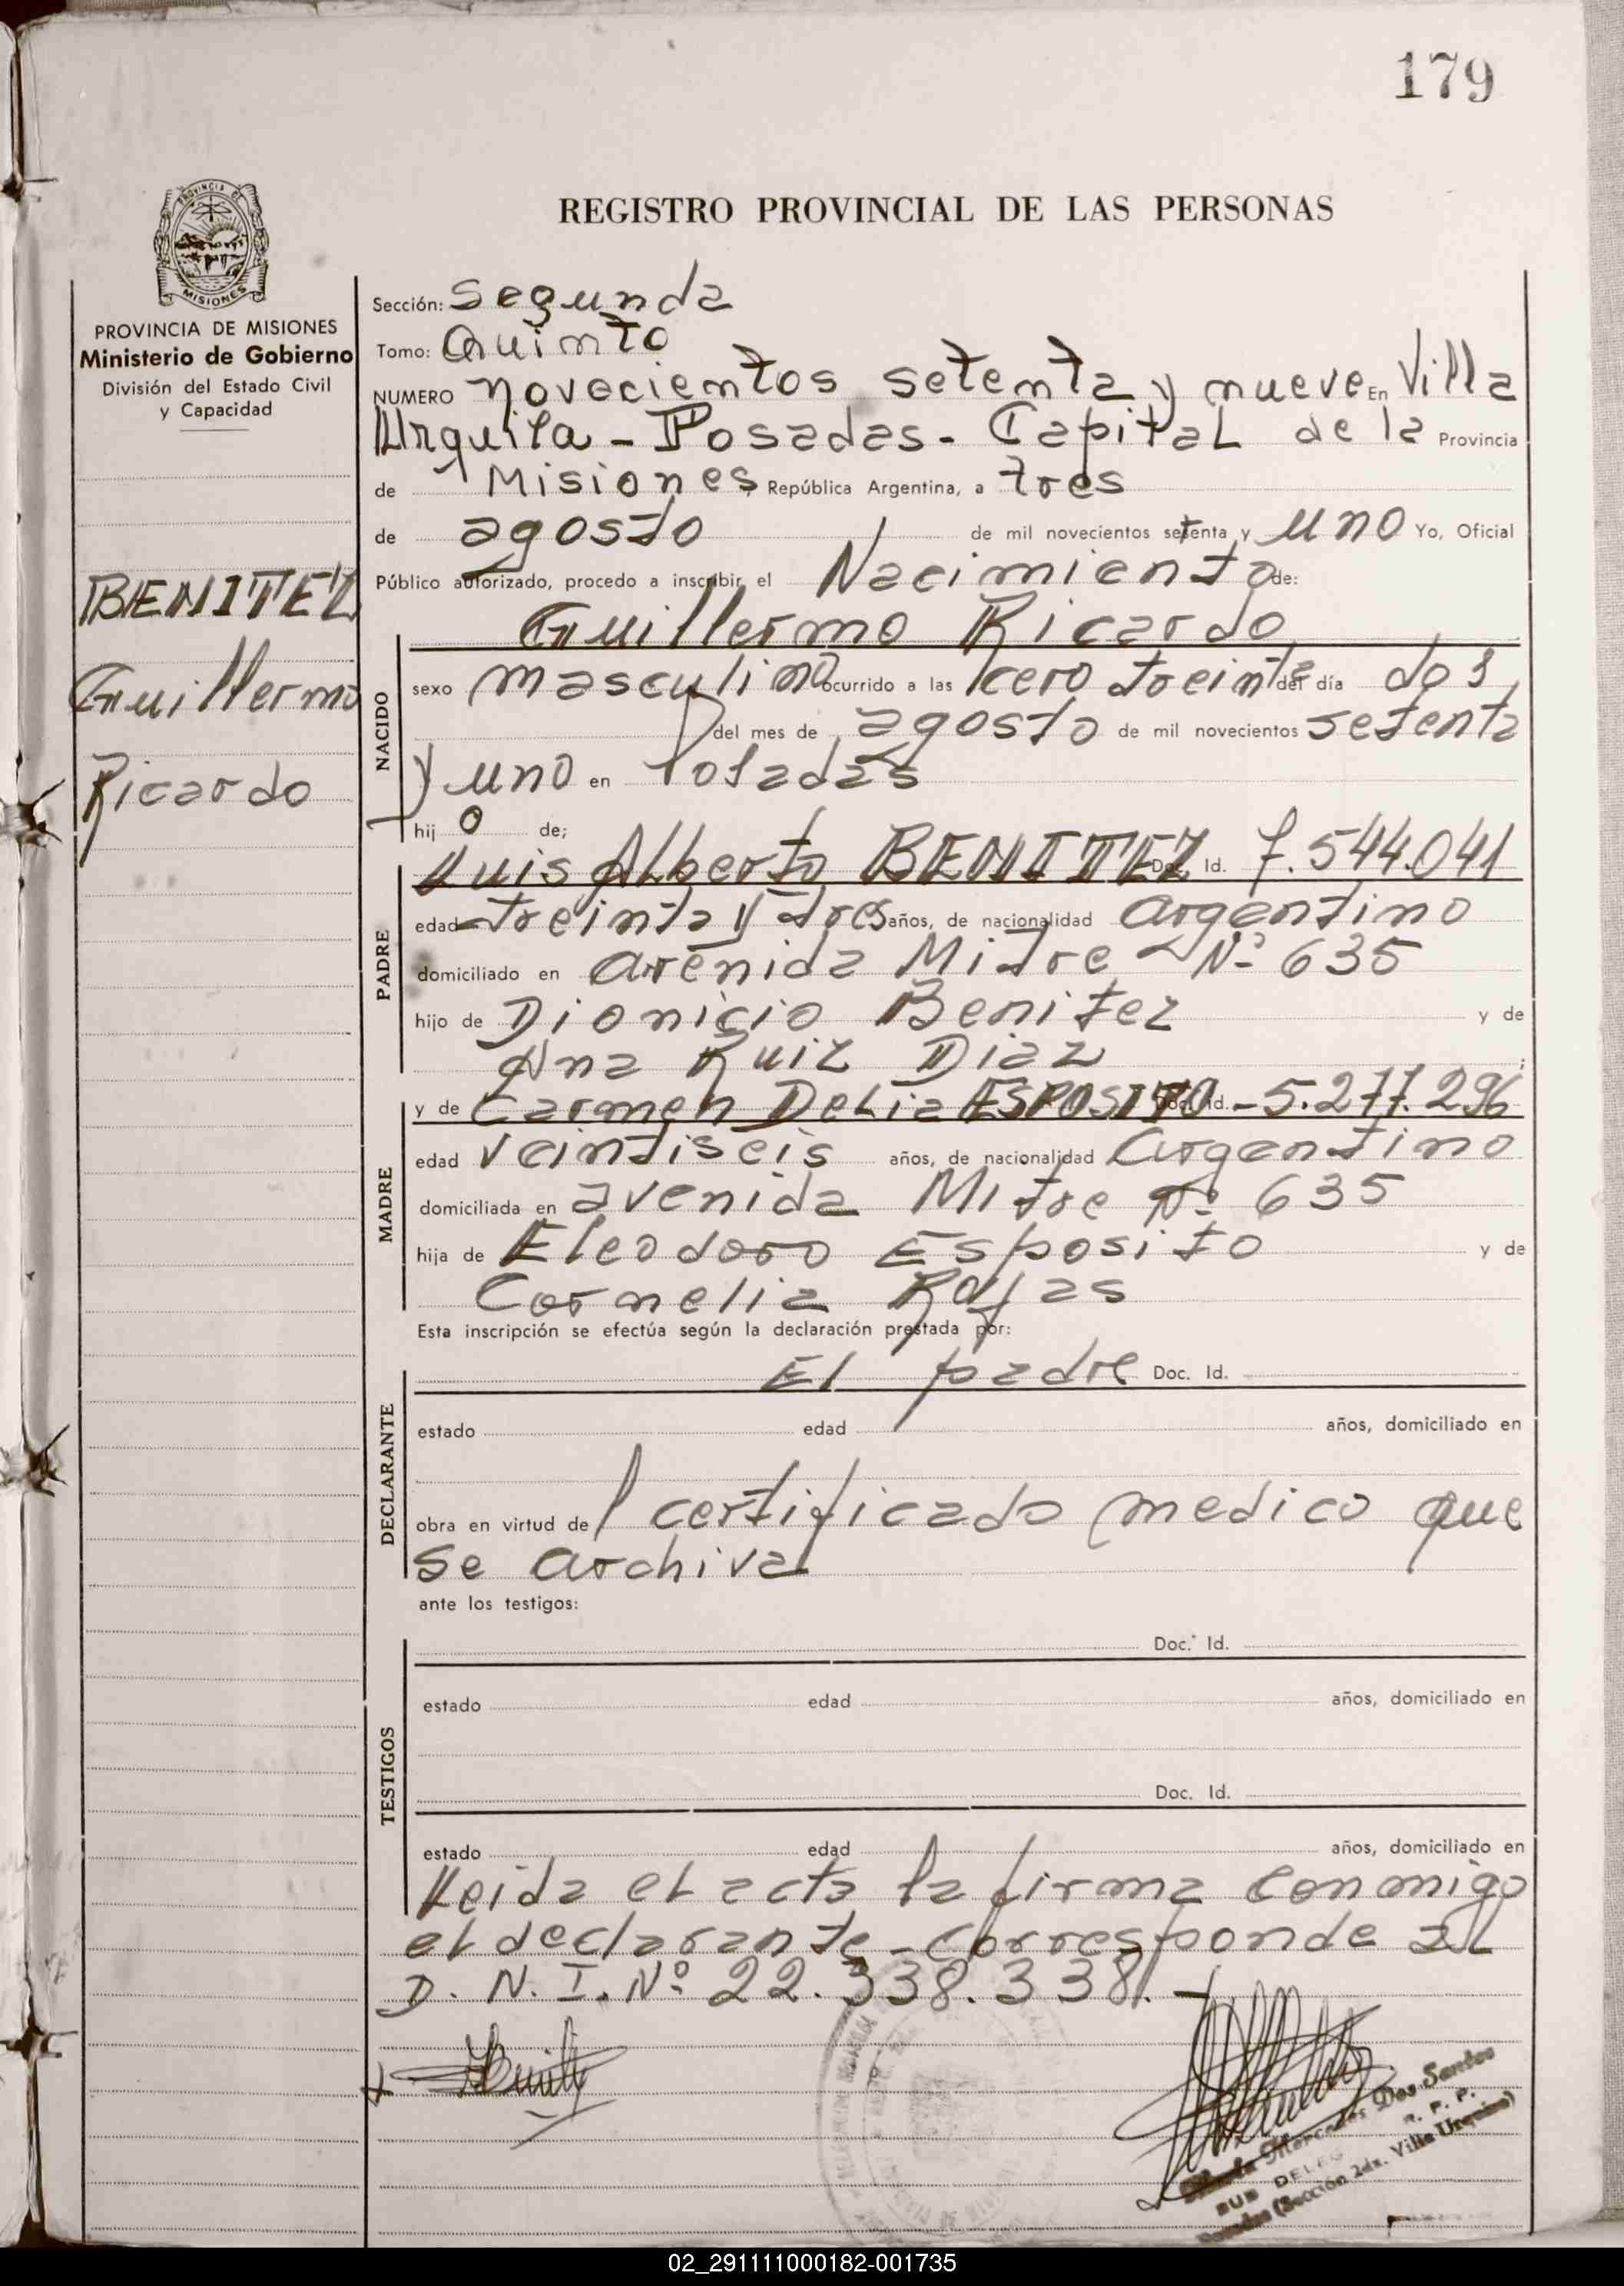 179
PROVINCIA DE
MISIONES
REGISTRO PROVINCIAL DE LAS PERSONAS
PROVINCIA DE MISIONES
Ministerio de Gobierno
División del Estado Civil
y Capacidad
BENITEZ
Guillermo
Ricardo
Sección: Segunda
Tomo: Quinto
NUMERO novecientos setenta y nueve En Villa
Urquiza - Posadas - Capital de la Provincia
de Misiones República Argentina, a tres
de agosto de mil novecientos setenta y uno Yo, Oficial
Público autorizado, procedo a inscribir el Nacimiento de:
Guillermo Ricardo
NACIDO
sexo masculino ocurrido a las cero treinta del día dos
del mes de agosto de mil novecientos setenta
y uno en Posadas
hij o de;
PADRE
Luis Alberto BENITEZ Doc. Id. 7.544.041
edad treinta y tres años, de nacionalidad argentino
domiciliado en avenida Mitre Nº 635
hijo de Dionicio Benitez y de
Ana Ruiz Diaz
MADRE
y de Carmen Delia ESPOSITO Doc. Id. - 5.277.296
edad veintiseis años, de nacionalidad argentino
domiciliada en avenida Mitre Nº 635
hija de Eleodoro Esposito y de
Cornelia Rojas
Esta inscripción se efectúa según la declaración prestada por:
DECLARANTE
El padre Doc. Id.
estado edad años, domiciliado en
obra en virtud de l certificado medico que
se archiva
ante los testigos:
TESTIGOS
Doc. Id.
estado edad años, domiciliado en
Doc. Id.
estado edad años, domiciliado en
Leida el acta la firma conmigo
el declarante - Corresponde al
D. N. I. Nº 22.338.338. -
Mercedes Dos Santos
R. P. P.
SUB DELEG
Posadas (Sección 2da. Villa Urquiza)
02_291111000182-001735